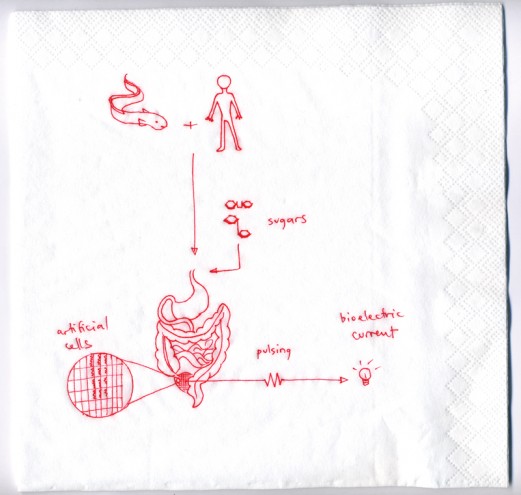 +
sugars
artificial
cells
pulsing
bioelectric
current